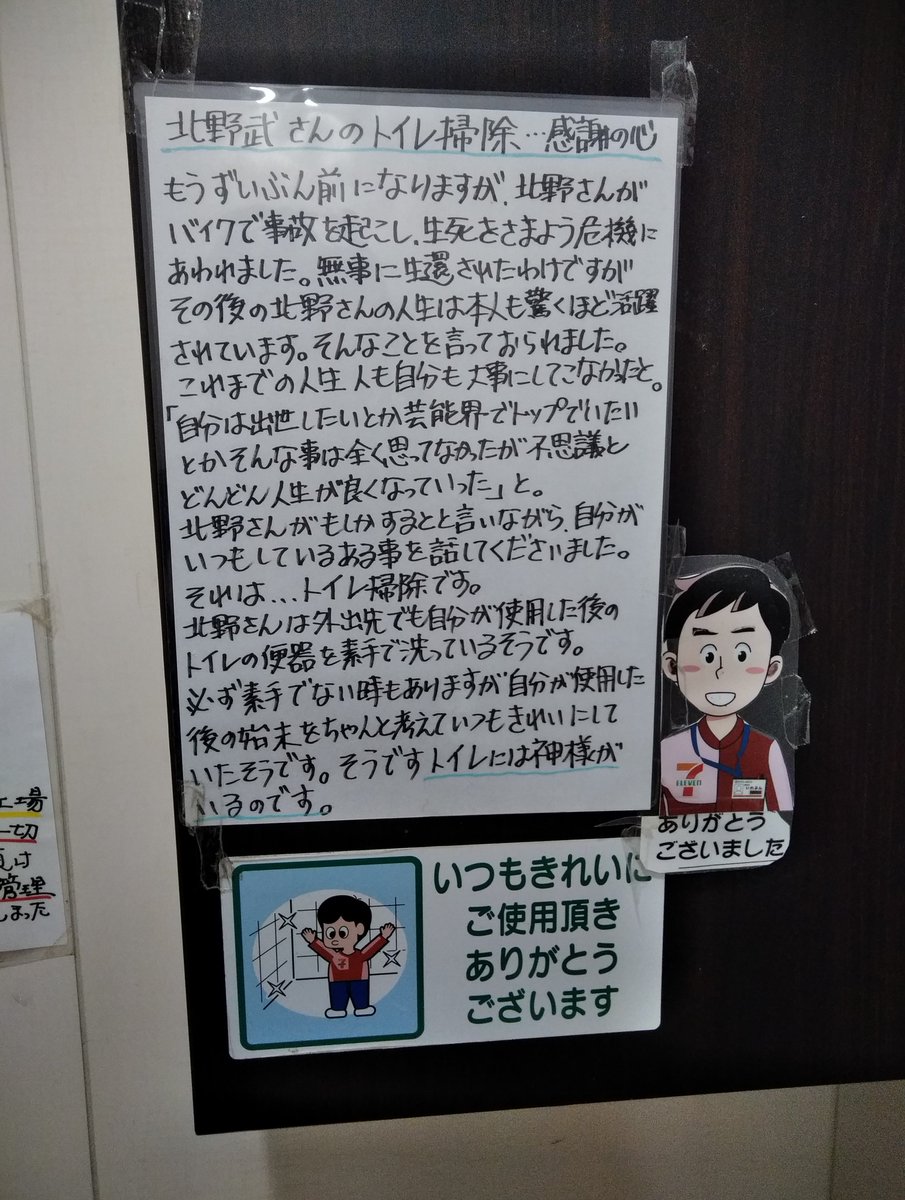 北野武さんのトイレ掃除…感謝の心
もうずいぶん前になりますが、北野さんが
バイクで事故を起こし、生死をさまよう危機に
あわれました。無事に生還されたわけですが
その後の北野さんの人生は本人も驚くほど活躍
されています。そんなことを言っておられました。
これまでの人生 人も自分も大事にしてこなかったと。
「自分は出世したいとか芸能界でトップでいたい
とかそんな事は全く思ってなかったが不思議と
どんどん人生が良くなっていった」と。
北野さんがもしかするとと言いながら、自分が
いつもしているある事を話してくださいました。
それは...トイレ掃除です。
北野さんは外出先でも自分が使用した後の
トイレの便器を素手で洗っているそうです。
必ず素手でない時もありますが自分が使用した
後の始末をちゃんと考えていつもきれいにして
いたそうです。そうですトイレには神様が
いるのです。
7
ELEVEN
ありがとう
ございました
いつもきれいに
ご使用頂き
ありがとう
ございます
工場
一切
管理
しまった